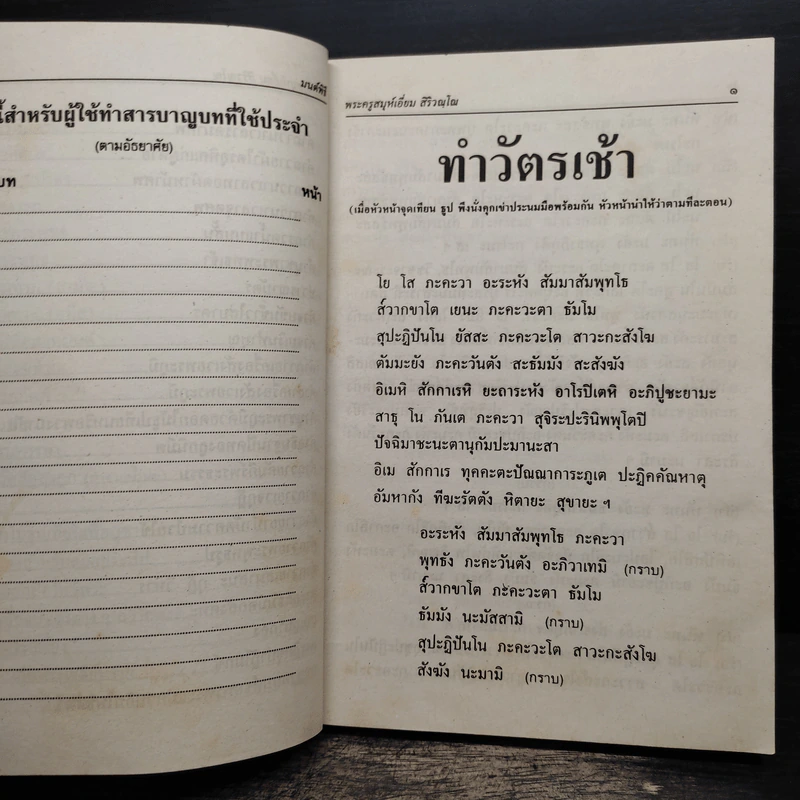 มนต์พิธี
นี้สำหรับผู้ใช้ทำสารบาญบทที่ใช้ประจำ
(ตามอัธยาศัย)
บท หน้า
พระครูสมุห์เอี่ยม สิริวณฺโณ ๑
ทำวัตรเช้า
(เมื่อหัวหน้าจุดเทียน ธูป พึงนั่งคุกเข่าประนมมือพร้อมกัน หัวหน้านำให้ว่าตามทีละตอน)
โย โส ภะคะวา อะระหัง สัมมาสัมพุทโธ
ส๎วากขาโต เยนะ ภะคะวะตา ธัมโม
สุปะฏิปันโน ยัสสะ ภะคะวะโต สาวะกะสังโฆ
ตัมมะยัง ภะคะวันตัง สะธัมมัง สะสังฆัง
อิเมหิ สักกาเรหิ ยะถาระหัง อาโรปิเตหิ อะภิปูชะยามะ
สาธุ โน ภันเต ภะคะวา สุจิระปะรินิพพุโตปิ
ปัจฉิมาชะนะตานุกัมปะมานะสา
อิเม สักกาเร ทุคคะตะปัณณาการะภูเต ปะฏิคคัณหาตุ
อัมหากัง ทีฆะรัตตัง หิตายะ สุขายะ ฯ
อะระหัง สัมมาสัมพุทโธ ภะคะวา
พุทธัง ภะคะวันตัง อะภิวาเทมิ (กราบ)
ส๎วากขาโต ภะคะวะตา ธัมโม
ธัมมัง นะมัสสามิ (กราบ)
สุปะฏิปันโน ภะคะวะโต สาวะกะสังโฆ
สังฆัง นะมามิ (กราบ)